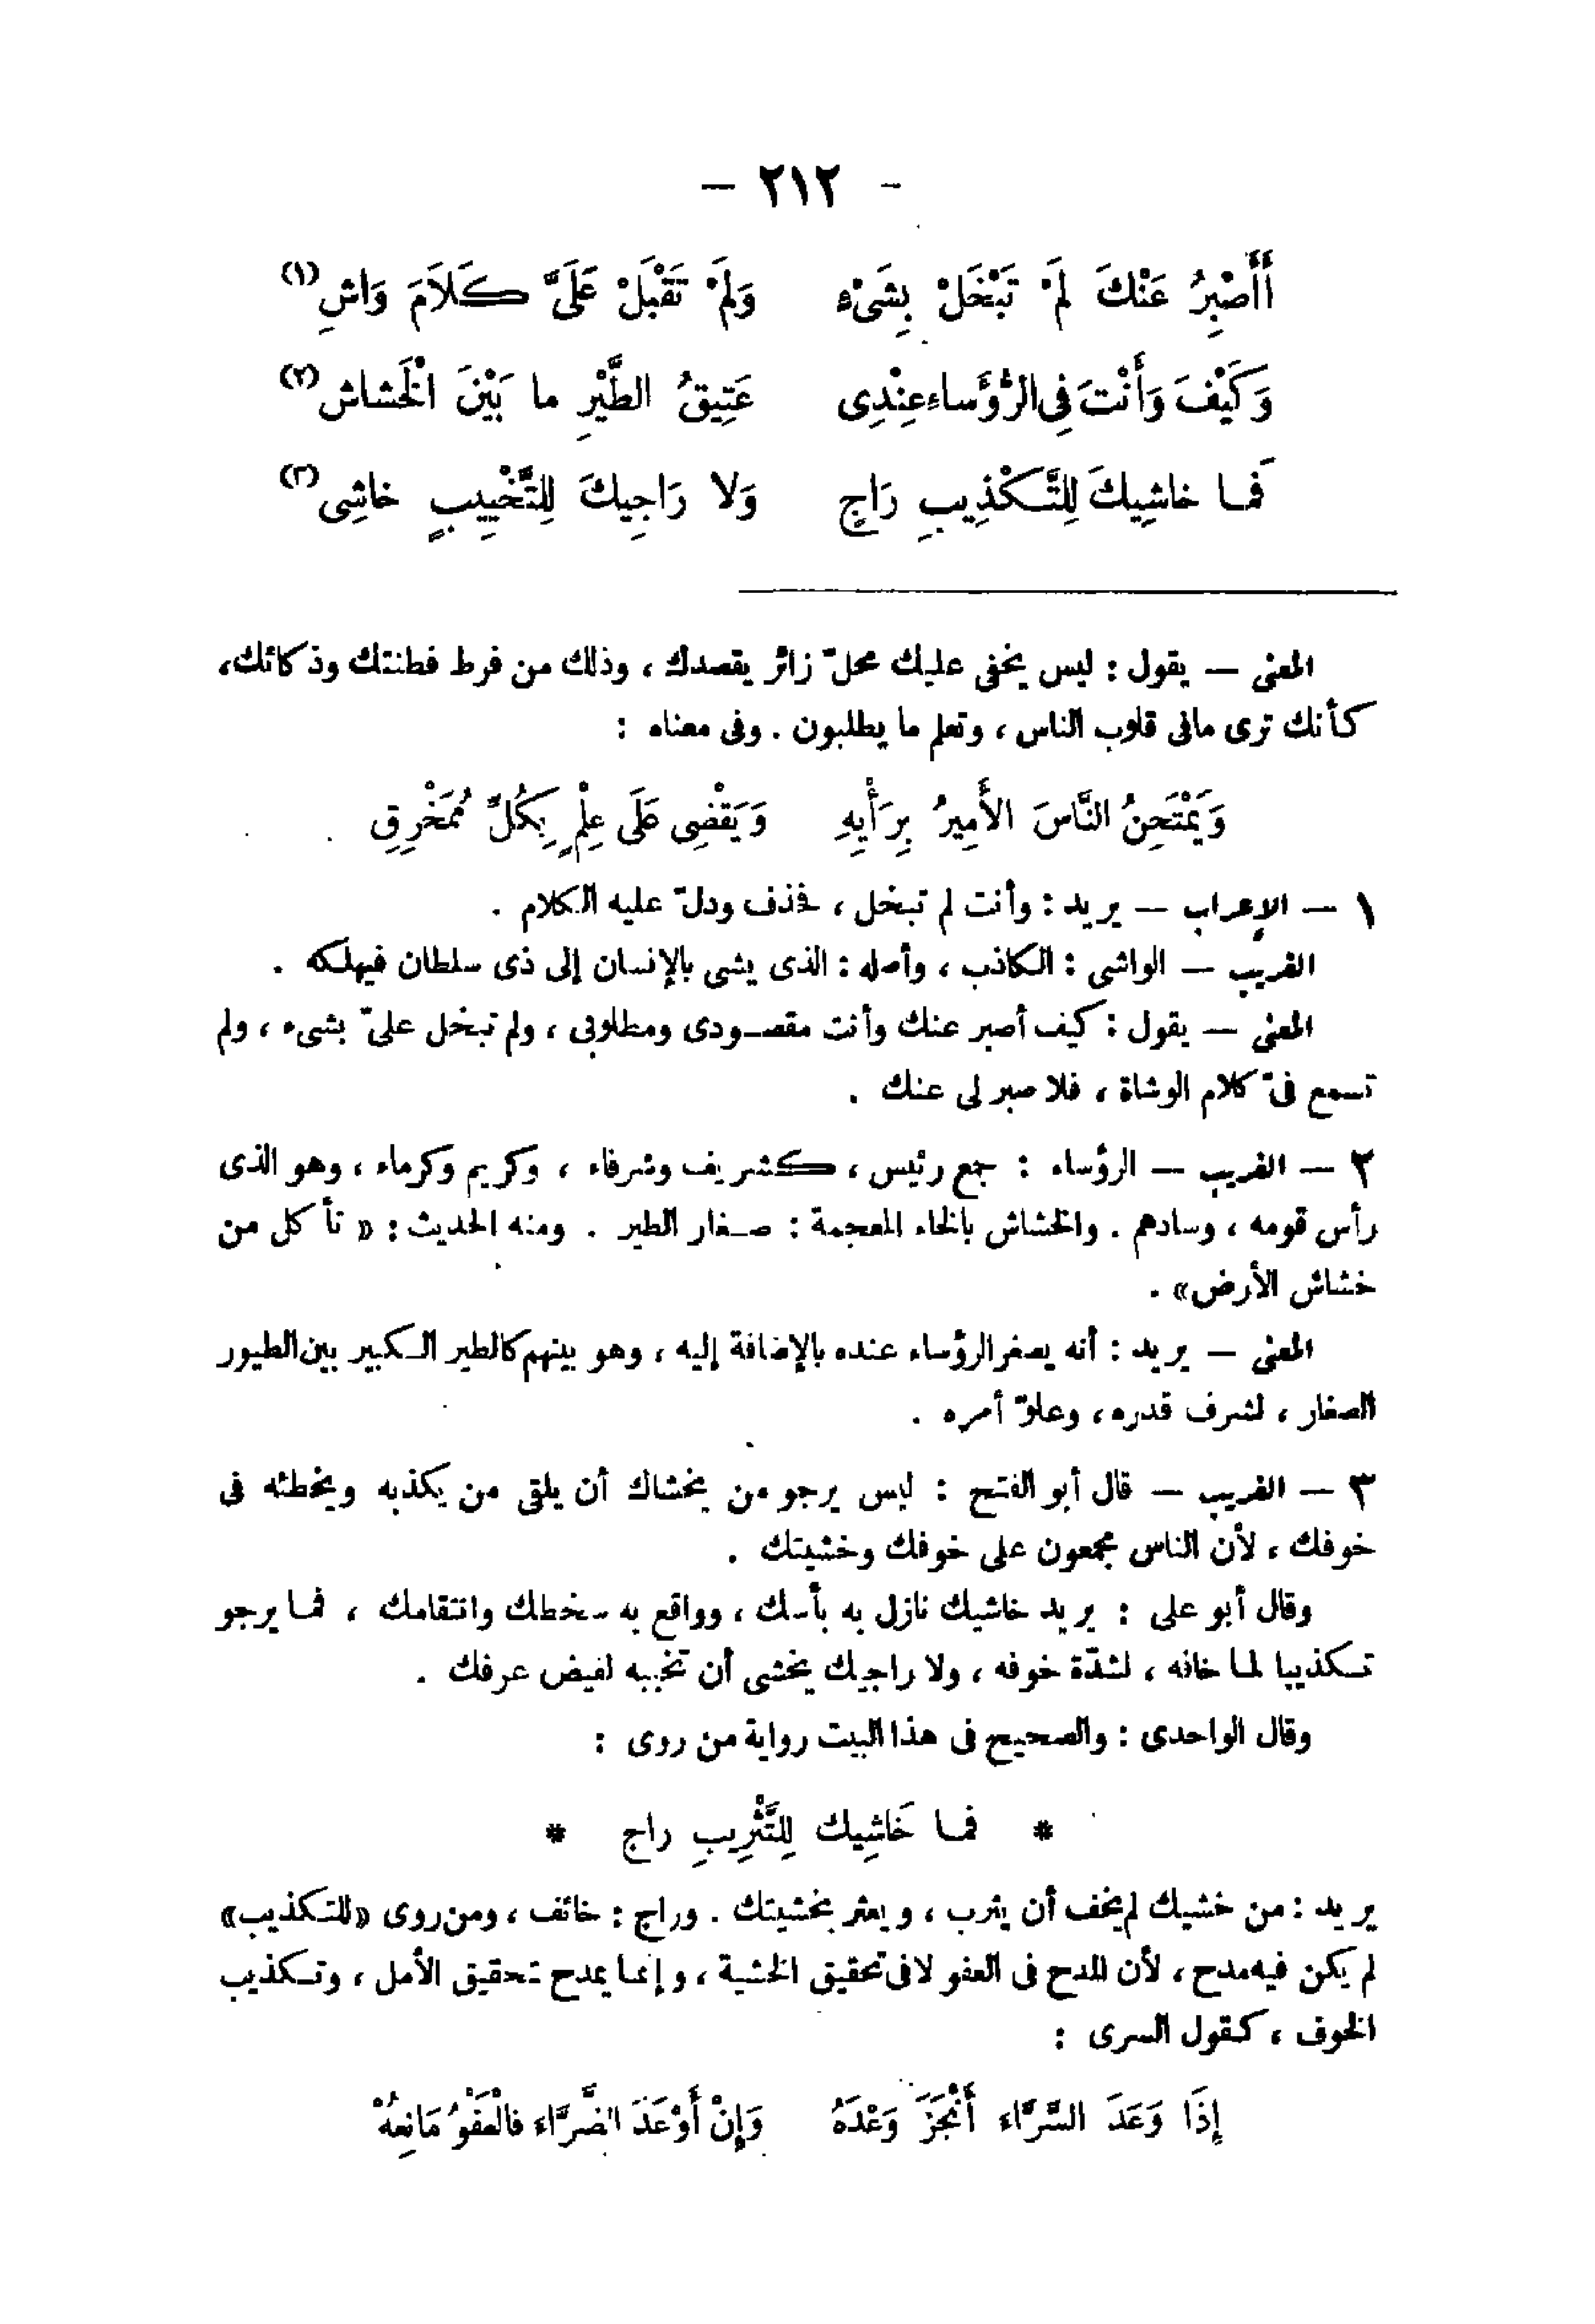 - ٢١٢ -
أَأَصْبِرُ عَنْكَ لَمْ تَبْخَلْ بِشَىْءٍ وَلَمْ تَقْبَلْ عَلَىَّ كَلاَمَ وَاشِ (١)
وَكَيْفَ وَأَنْتَ فِى الرُّؤَساءِ عِنْدِى عَتِيقُ الطَّيْرِ ما بَيْنَ الْخَشاش (٢)
فَمـا خاشِيكَ لِلتَّـكْذِيبِ رَاجٍ وَلا رَاجِيكَ لِلتَّخْيِيبِ خاشِى (٣)
المعنى — يقول : ليس يخفى عليك محلّ زائر يقصدك ، وذلك من فرط فطنتك وذكائك،
كأنك ترى مافى قلوب الناس ، وتعلم ما يطلبون . وفى معناه :
وَيَمْتَحِنُ النَّاسَ الأَمِيرُ بِرَأْيِهِ وَيَقْضِى عَلَى عِلْمٍ بِكُلِّ مُمَخْرِقِ
١ — الإعراب — يريد : وأنت لم تبخل ، فحذف ودلّ عليه الـكلام .
الغريب — الواشى : الـكاذب ، وأصله : الذى يشى بالإنسان إلى ذى سلطان فيهلـكه .
المعنى — يقول : كيف أصبر عنك وأنت مقصـودى ومطلوبى ، ولم تبخل علىّ بشىء ، ولم
تسمع فىّ كلام الوشاة ، فلا صبر لى عنك .
٢ — الغريب — الرؤساء : جمع رئيس ، كشريف وشرفاء ، وكريم وكرماء ، وهو الذى
رأس قومه ، وسادهم . والخشاش بالخاء المعجمة : صـغار الطير . ومنه الحديث : « تأكل من
خشاش الأرض» .
المعنى — يريد : أنه يصغر الرؤساء عنده بالإضافة إليه ، وهو بينهم كالطير الـكبير بين الطيور
الصغار ، لشرف قدره ، وعلوّ أمره .
٣ — الغريب — قال أبو الفتح : ليس يرجو من يخشاك أن يلقى من يكذبه ويخطئه فى
خوفك ، لأن الناس مجمعون على خوفك وخشيتك .
وقال أبو على : يريد خاشيك نازل به بأسك ، وواقع به سخطك وانتقامك ، فمـا يرجو
تـكذيبا لمـا خافه ، لشدّة خوفه ، ولا راجيك يخشى أن تخيبه لفيض عرفك .
وقال الواحدى : والصحيح فى هذا البيت رواية من روى :
* فمـا خَاشِيك لِلتَّثْرِيبِ راج *
يريد : من خشيك لم يخف أن يثرب ، ويعثر بخشيتك . وراج : خائف ، ومن روى «للتـكذيب»
لم يكن فيه مدح ، لأن المدح فى العفو لا فى تحقيق الخشية ، وإنمـا يمدح بتحقيق الأمل ، وتـكذيب
الخوف ، كقول السرى :
إِذَا وَعَدَ السَّرَّاءَ أَنْجَزَ وَعْدَهُ وَإِنْ أَوْعَدَ الضَّرَّاءَ فالْعَفْوُ مَانِعُهْ